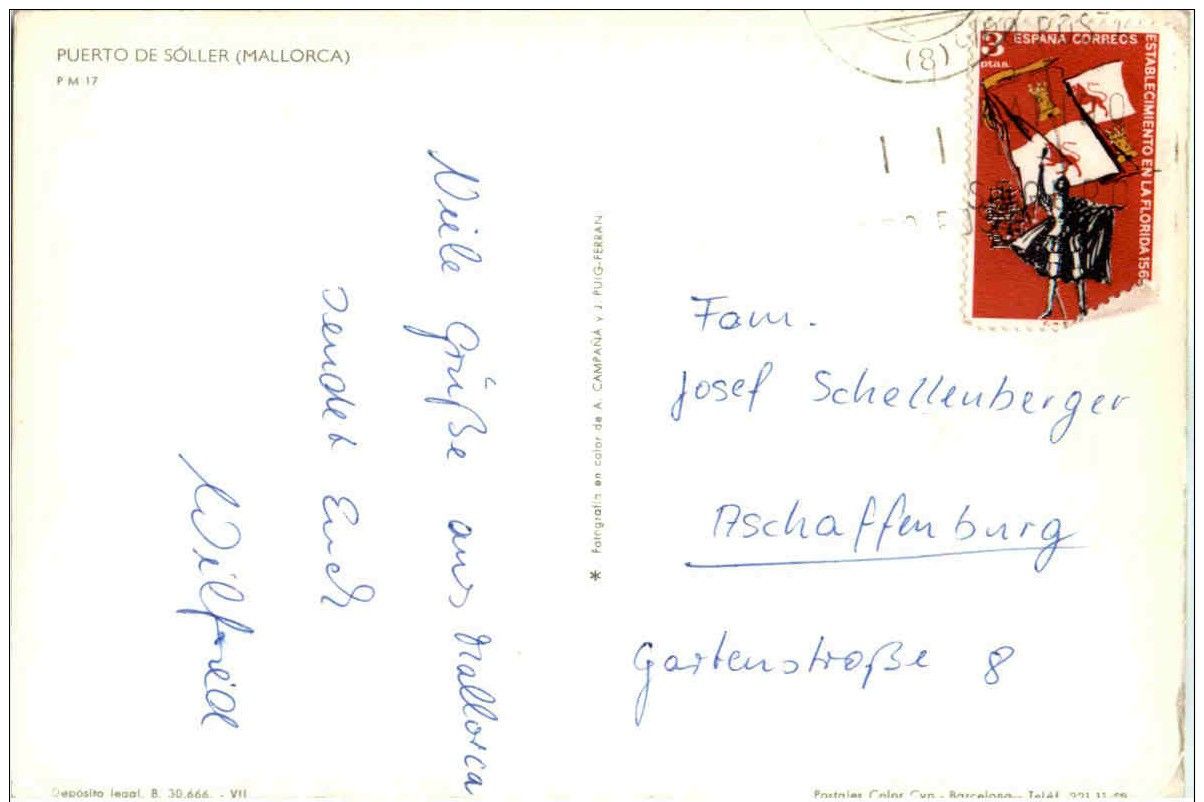 PUERTO DE SÓLLER (MALLORCA)
P M 17
Viele Grüße aus Mallorca
sendet Euch
Wilfried
* Fotografía en color de A. CAMPAÑA y J. PUIG-FERRAN
(8)
3 ESPAÑA CORREOS
ptas.
ESTABLECIMIENTO EN LA FLORIDA 156
Fam.
Josef Schellenberger
Aschaffenburg
Gartenstraße 8
Depósito legal. B. 30.666. - VII
Postales Color Cyp - Barcelona - Teléf.